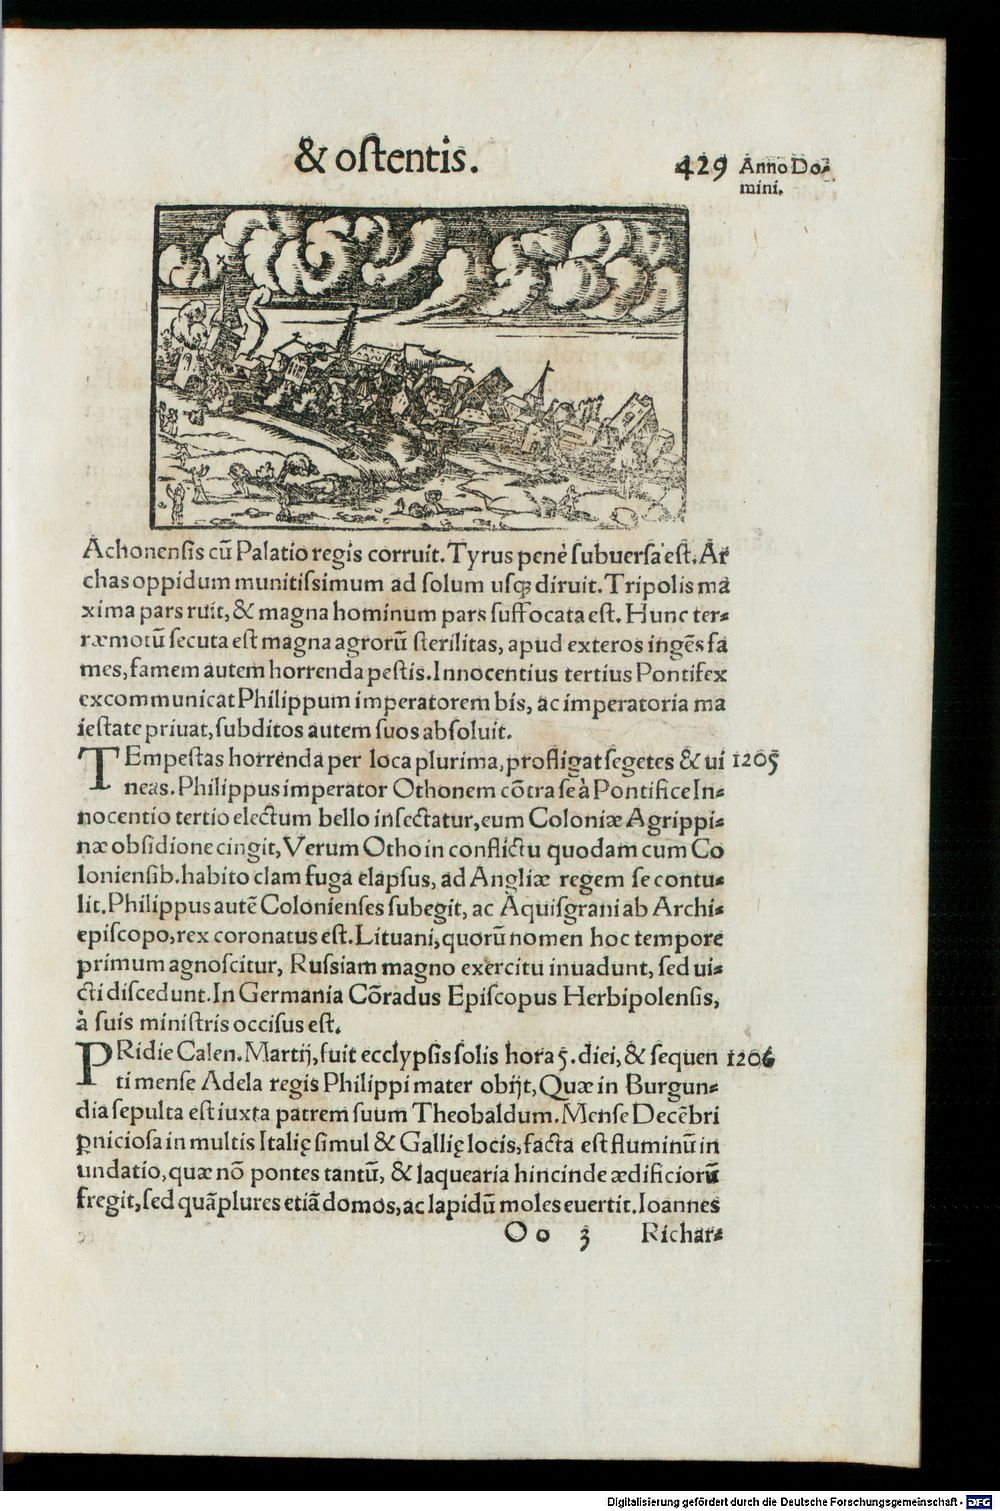 & ostentis.
429 Anno Do⸗
mini.
Achonensis cū Palatio regis corruit. Tyrus penè subuersa est. Ar
chas oppidum munitissimum ad solum usq; diruit. Tripolis ma
xima pars ruit, & magna hominum pars suffocata est. Hunc ter⸗
ræmotū secuta est magna agrorū sterilitas, apud exteros ingēs fa
mes, famem autem horrenda pestis. Innocentius tertius Pontifex
excommunicat Philippum imperatorem bis, ac imperatoria ma
iestate priuat, subditos autem suos absoluit.
TEmpestas horrenda per loca plurima, profligat segetes & ui 1205
neas. Philippus imperator Othonem cōtra se à Pontifice In⸗
nocentio tertio electum bello insectatur, eum Coloniæ Agrippi⸗
næ obsidione cingit, Verum Otho in conflictu quodam cum Co
loniensib. habito clam fuga elapsus, ad Angliæ regem se contu⸗
lit. Philippus autē Colonienses subegit, ac Aquisgrani ab Archi⸗
episcopo, rex coronatus est. Lituani, quorū nomen hoc tempore
primum agnoscitur, Russiam magno exercitu inuadunt, sed ui⸗
cti discedunt. In Germania Cōradus Episcopus Herbipolensis,
à suis ministris occisus est.
PRidie Calen. Martij, fuit ecclypsis solis hora 5. diei, & sequen 1206
ti mense Adela regis Philippi mater obijt, Quæ in Burgun⸗
dia sepulta est iuxta patrem suum Theobaldum. Mense Decēbri
ꝑniciosa in multis Italię simul & Gallię locis, facta est fluminū in
undatio, quæ nō pontes tantū, & laquearia hincinde ædificiorū
fregit, sed quāplures etiā domos, ac lapidū moles euertit. Ioannes
Oo 3 Richar⸗
Digitalisierung gefördert durch die Deutsche Forschungsgemeinschaft - DFG